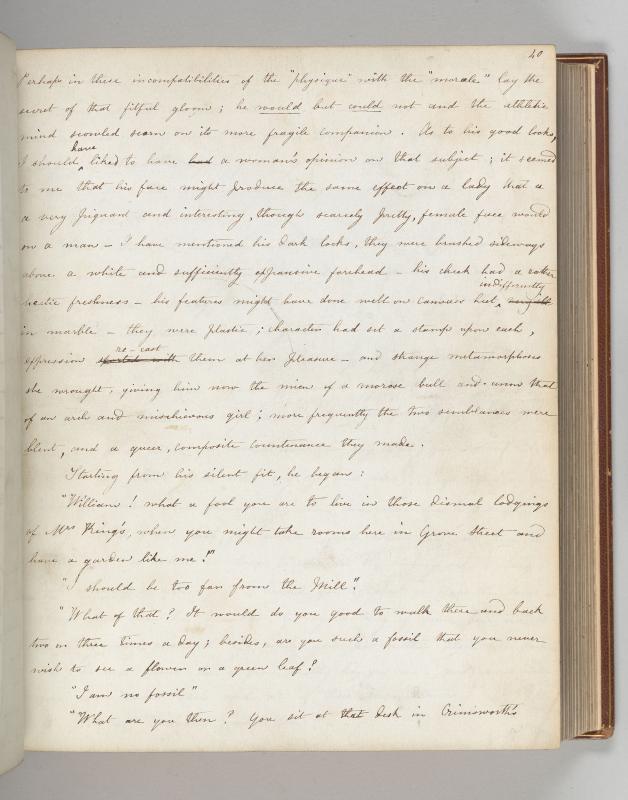 40
Perhaps in these incompatibilities of the "physique" with the "morale" lay the
secret of that fitful gloom; he would but could not and the athletic
mind scowled scorn on its more fragile companion. As to his good looks,
have
I should liked to have had a woman's opinion on that subject; it seemed
to me that his face might produce the same effect on a lady that a
a very piquant and interesting, though scarcely pretty, female face would
on a man – I have mentioned his dark locks, they were brushed sideways
above a white and sufficiently expansive forehead – his cheek had a rather
indifferently
hectic freshness – his features might have done well on canvass but,
in marble – they were plastic; character had set a stamp upon each,
re-cast
expression them at her pleasure – and strange metamorphoses
she wrought, giving him now the mien of a morose bull and anon that
of an arch and mischievous girl; more frequently the two semblances were
blent, and a queer, composite countenance they made.
Starting from his silent fit, he began:
"William! what a fool you are to live in those dismal lodgings
of Mrs King's, when you might take rooms here in Grove Street and
have a garden like me!"
"I should be too far from the Mill".
"What of that? It would do you good to walk there and back
two or three times a day; besides, are you such a fossil that you never
wish to see a flower or a green leaf?
"I am no fossil"
"What are you then? You sit at that desk in Crimsworth's